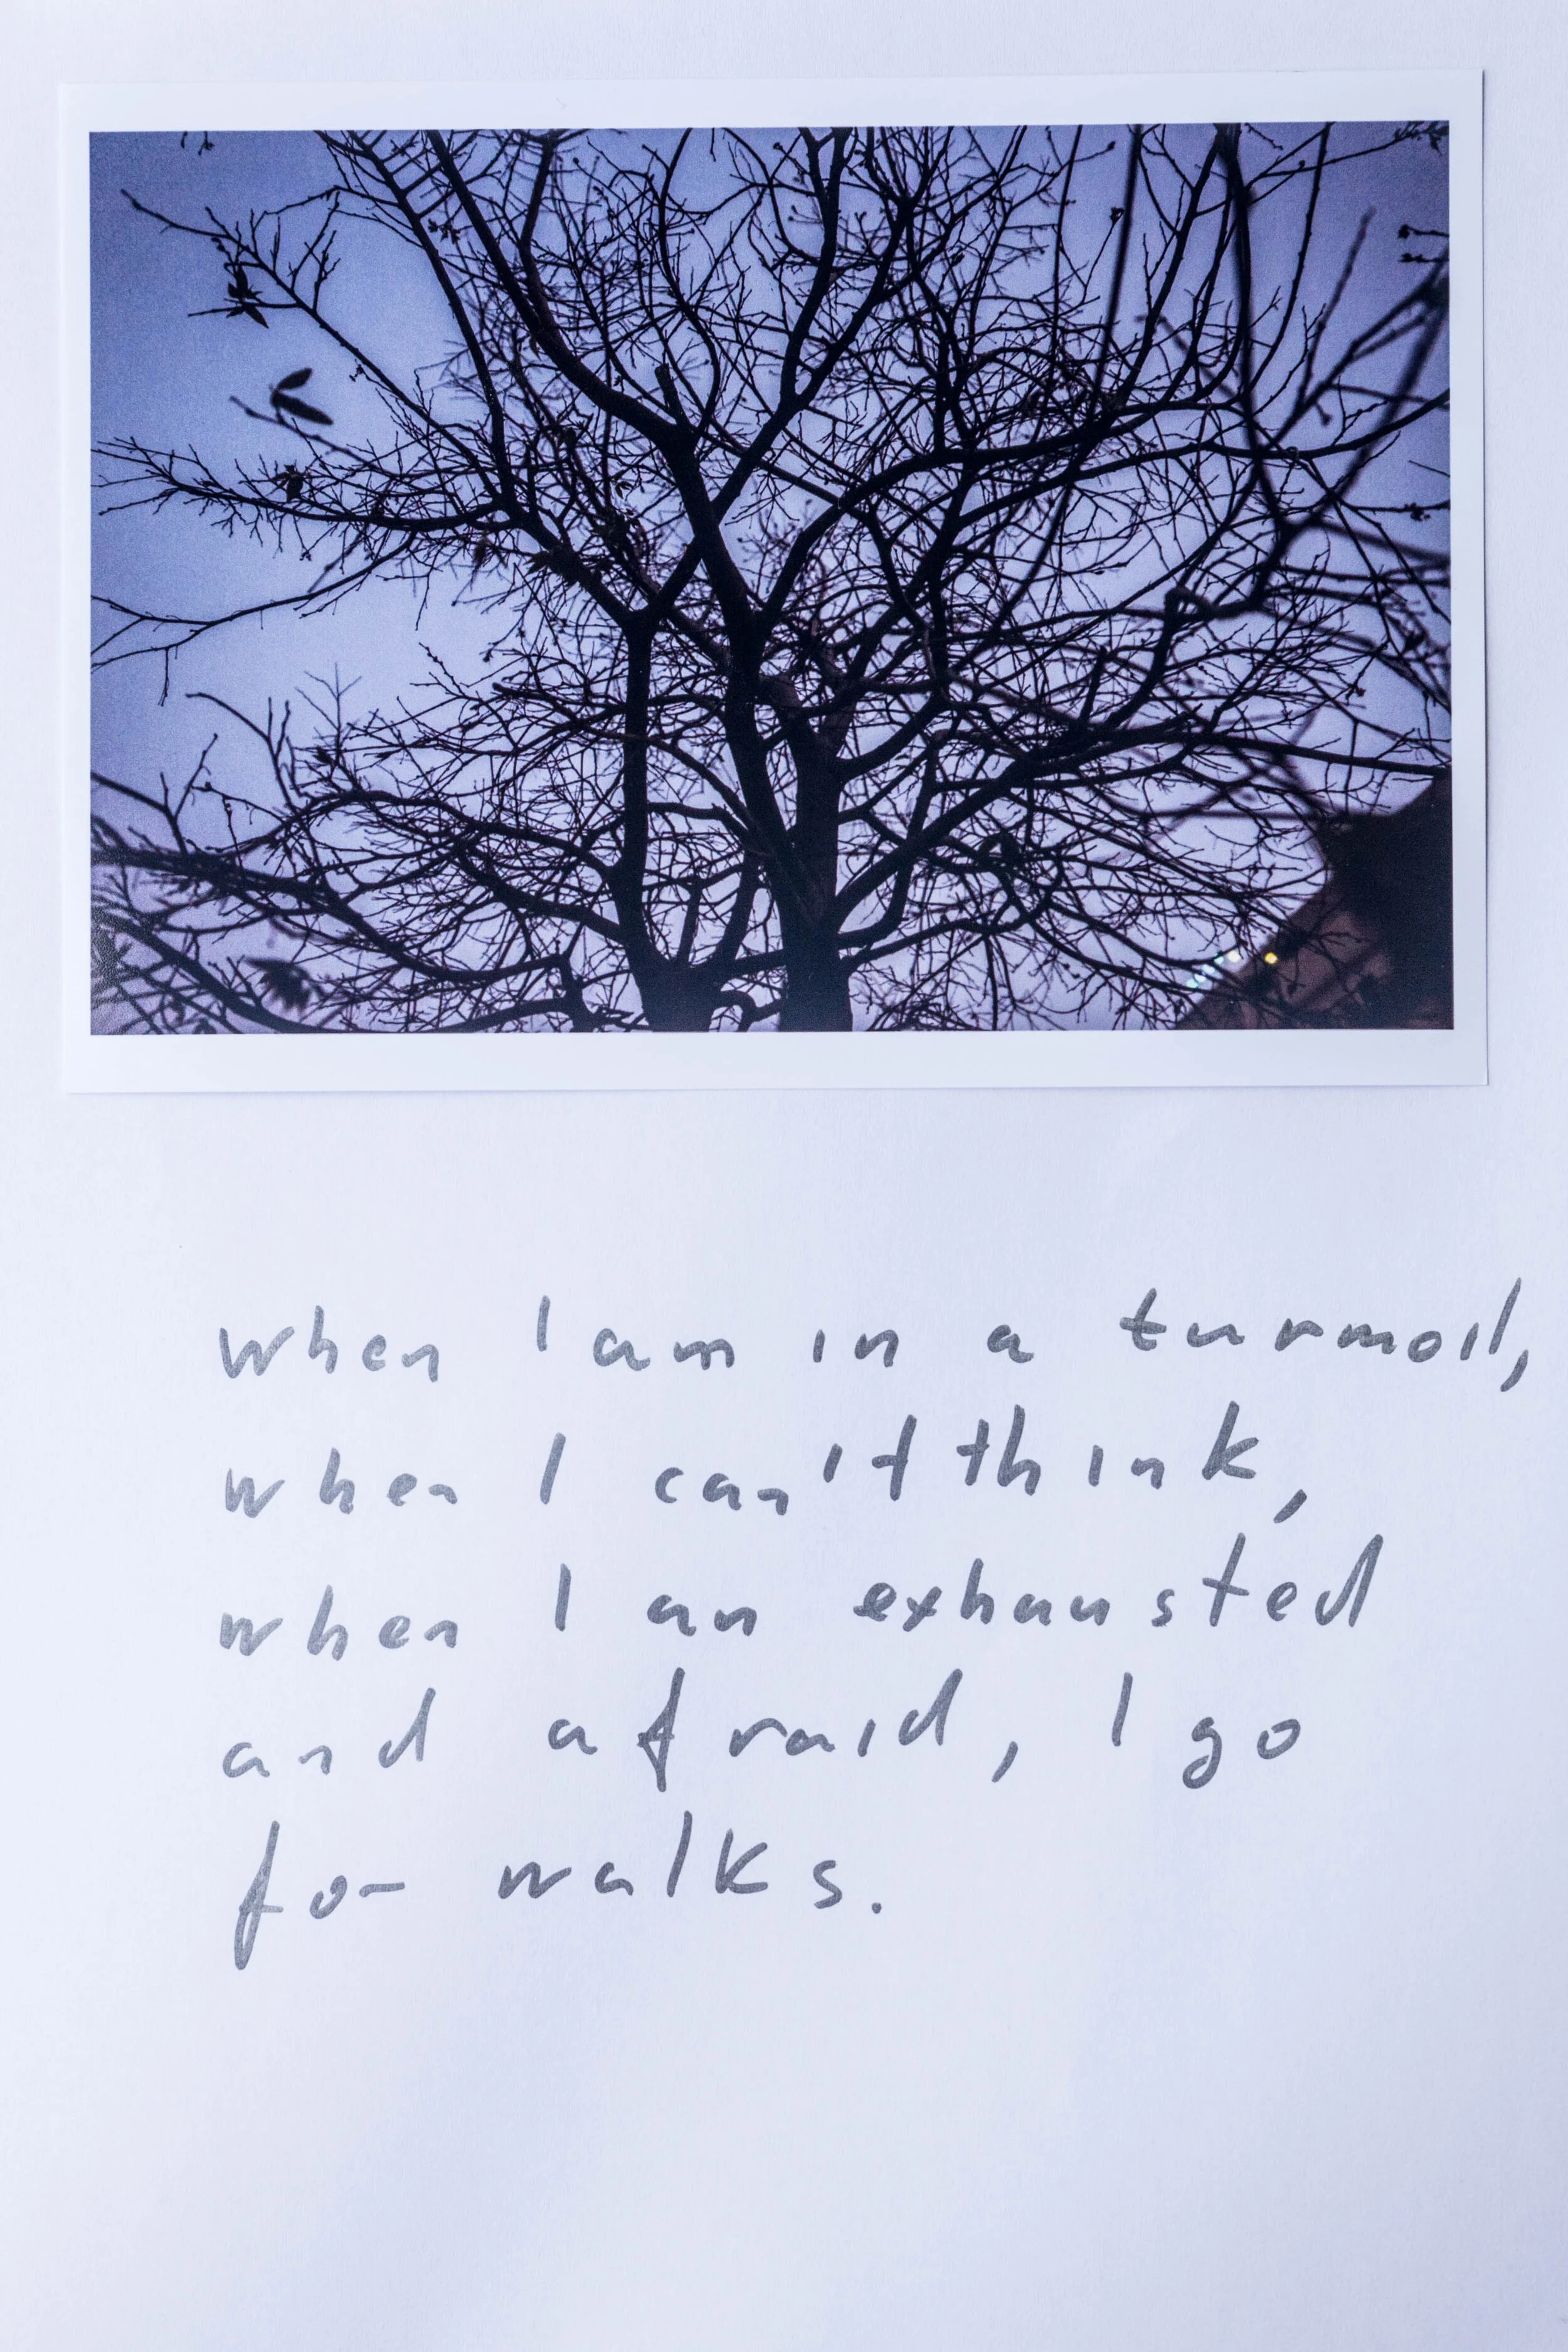 when I am in a turmoil,
when I can't think,
when I am exhausted
and afraid, I go
for walks.